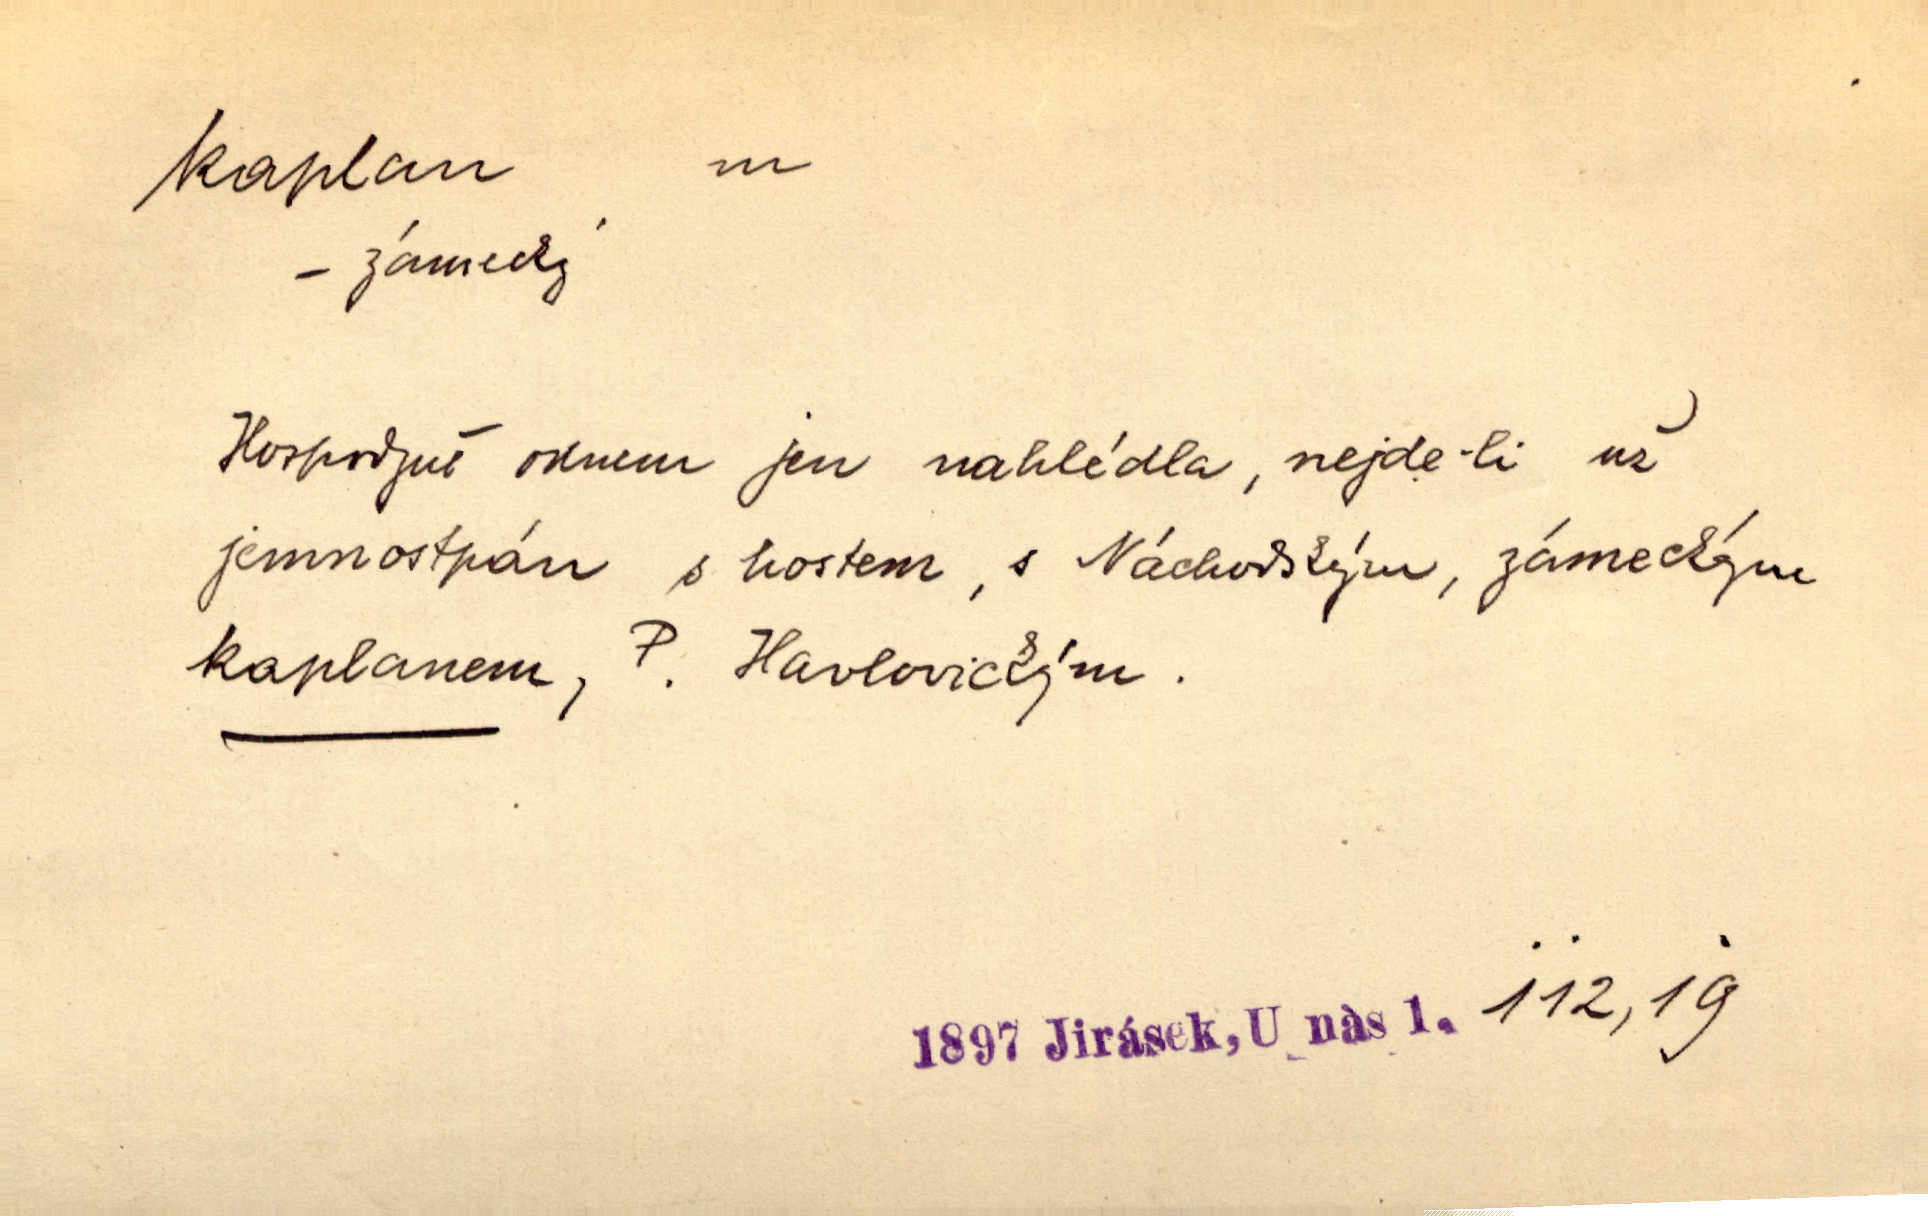 kaplan m
– zámecký
Hospodyně oknem jen nahlédla, nejde-li už
jemnostpán s hostem, s Náchodským, zámeckým
kaplanem, P. Havlovickým.
1897 Jirásek, U nàs 1. 112, 19